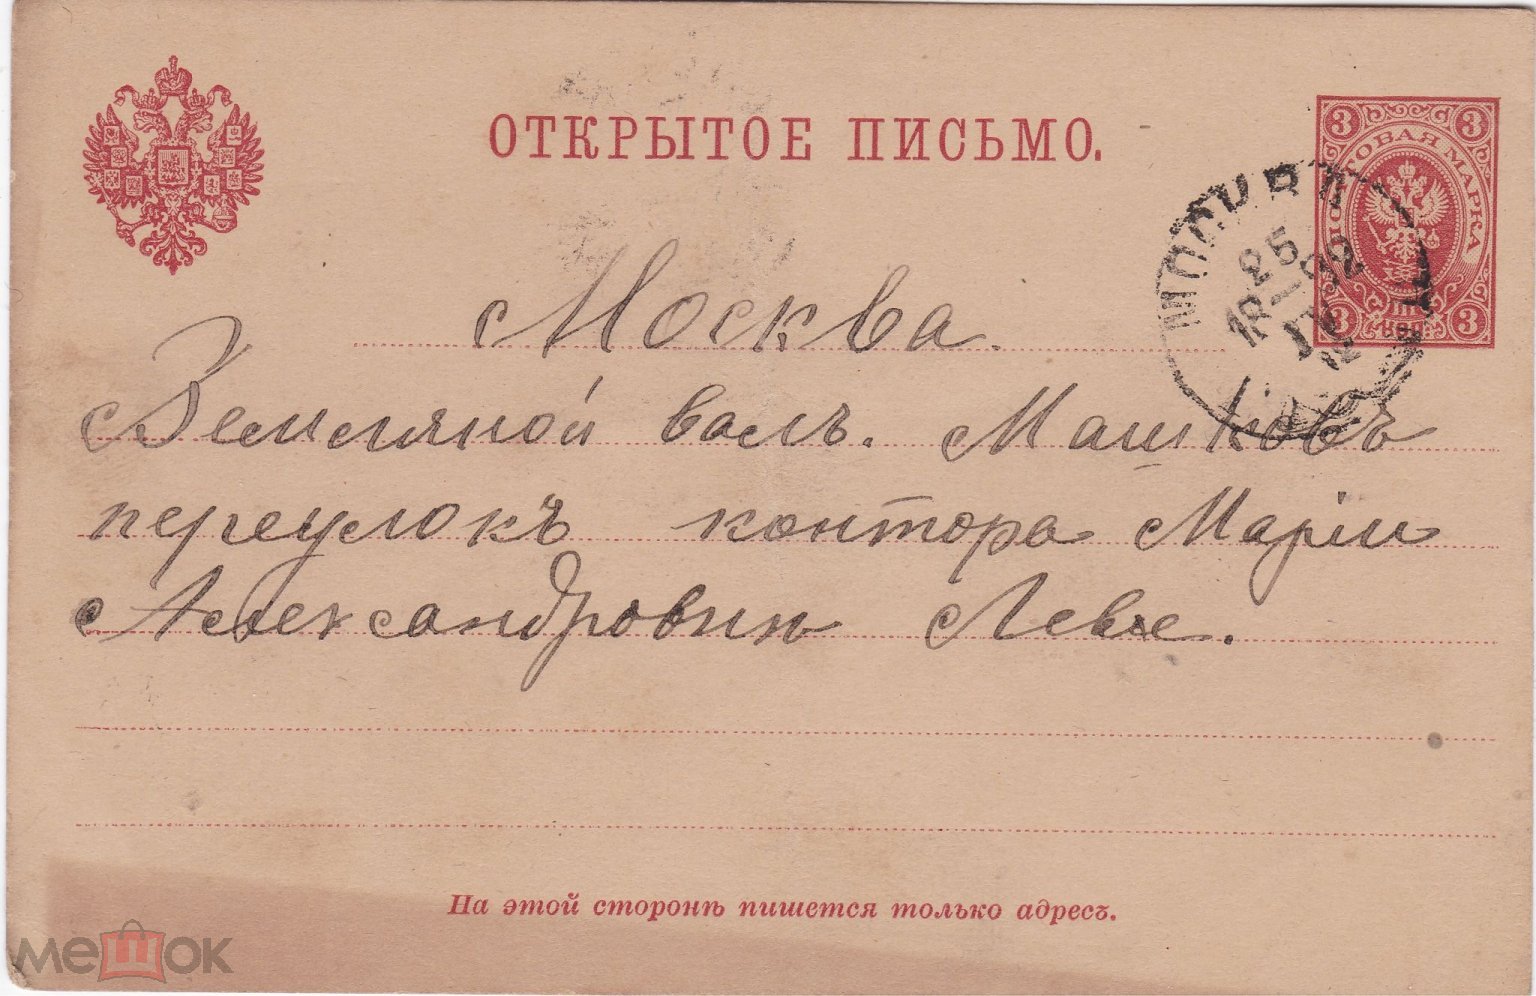 ОТКРЫТОЕ ПИСЬМО.
3 3
ПОЧТОВАЯ МАРКА
3 КОП. 3
МОСКВА
25
1892
IV
Москва.
Земляной валъ. Машковъ
переулокъ контора Маріи
Александровны Левье.
На этой сторонѣ пишется только адресъ.
мешок